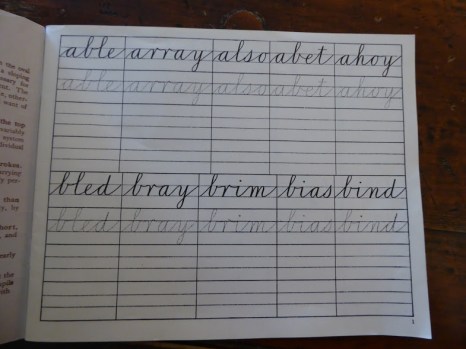 able array also abet ahoy
able array also abet ahoy
bled bray brim bias bind
bled bray brim bias bind